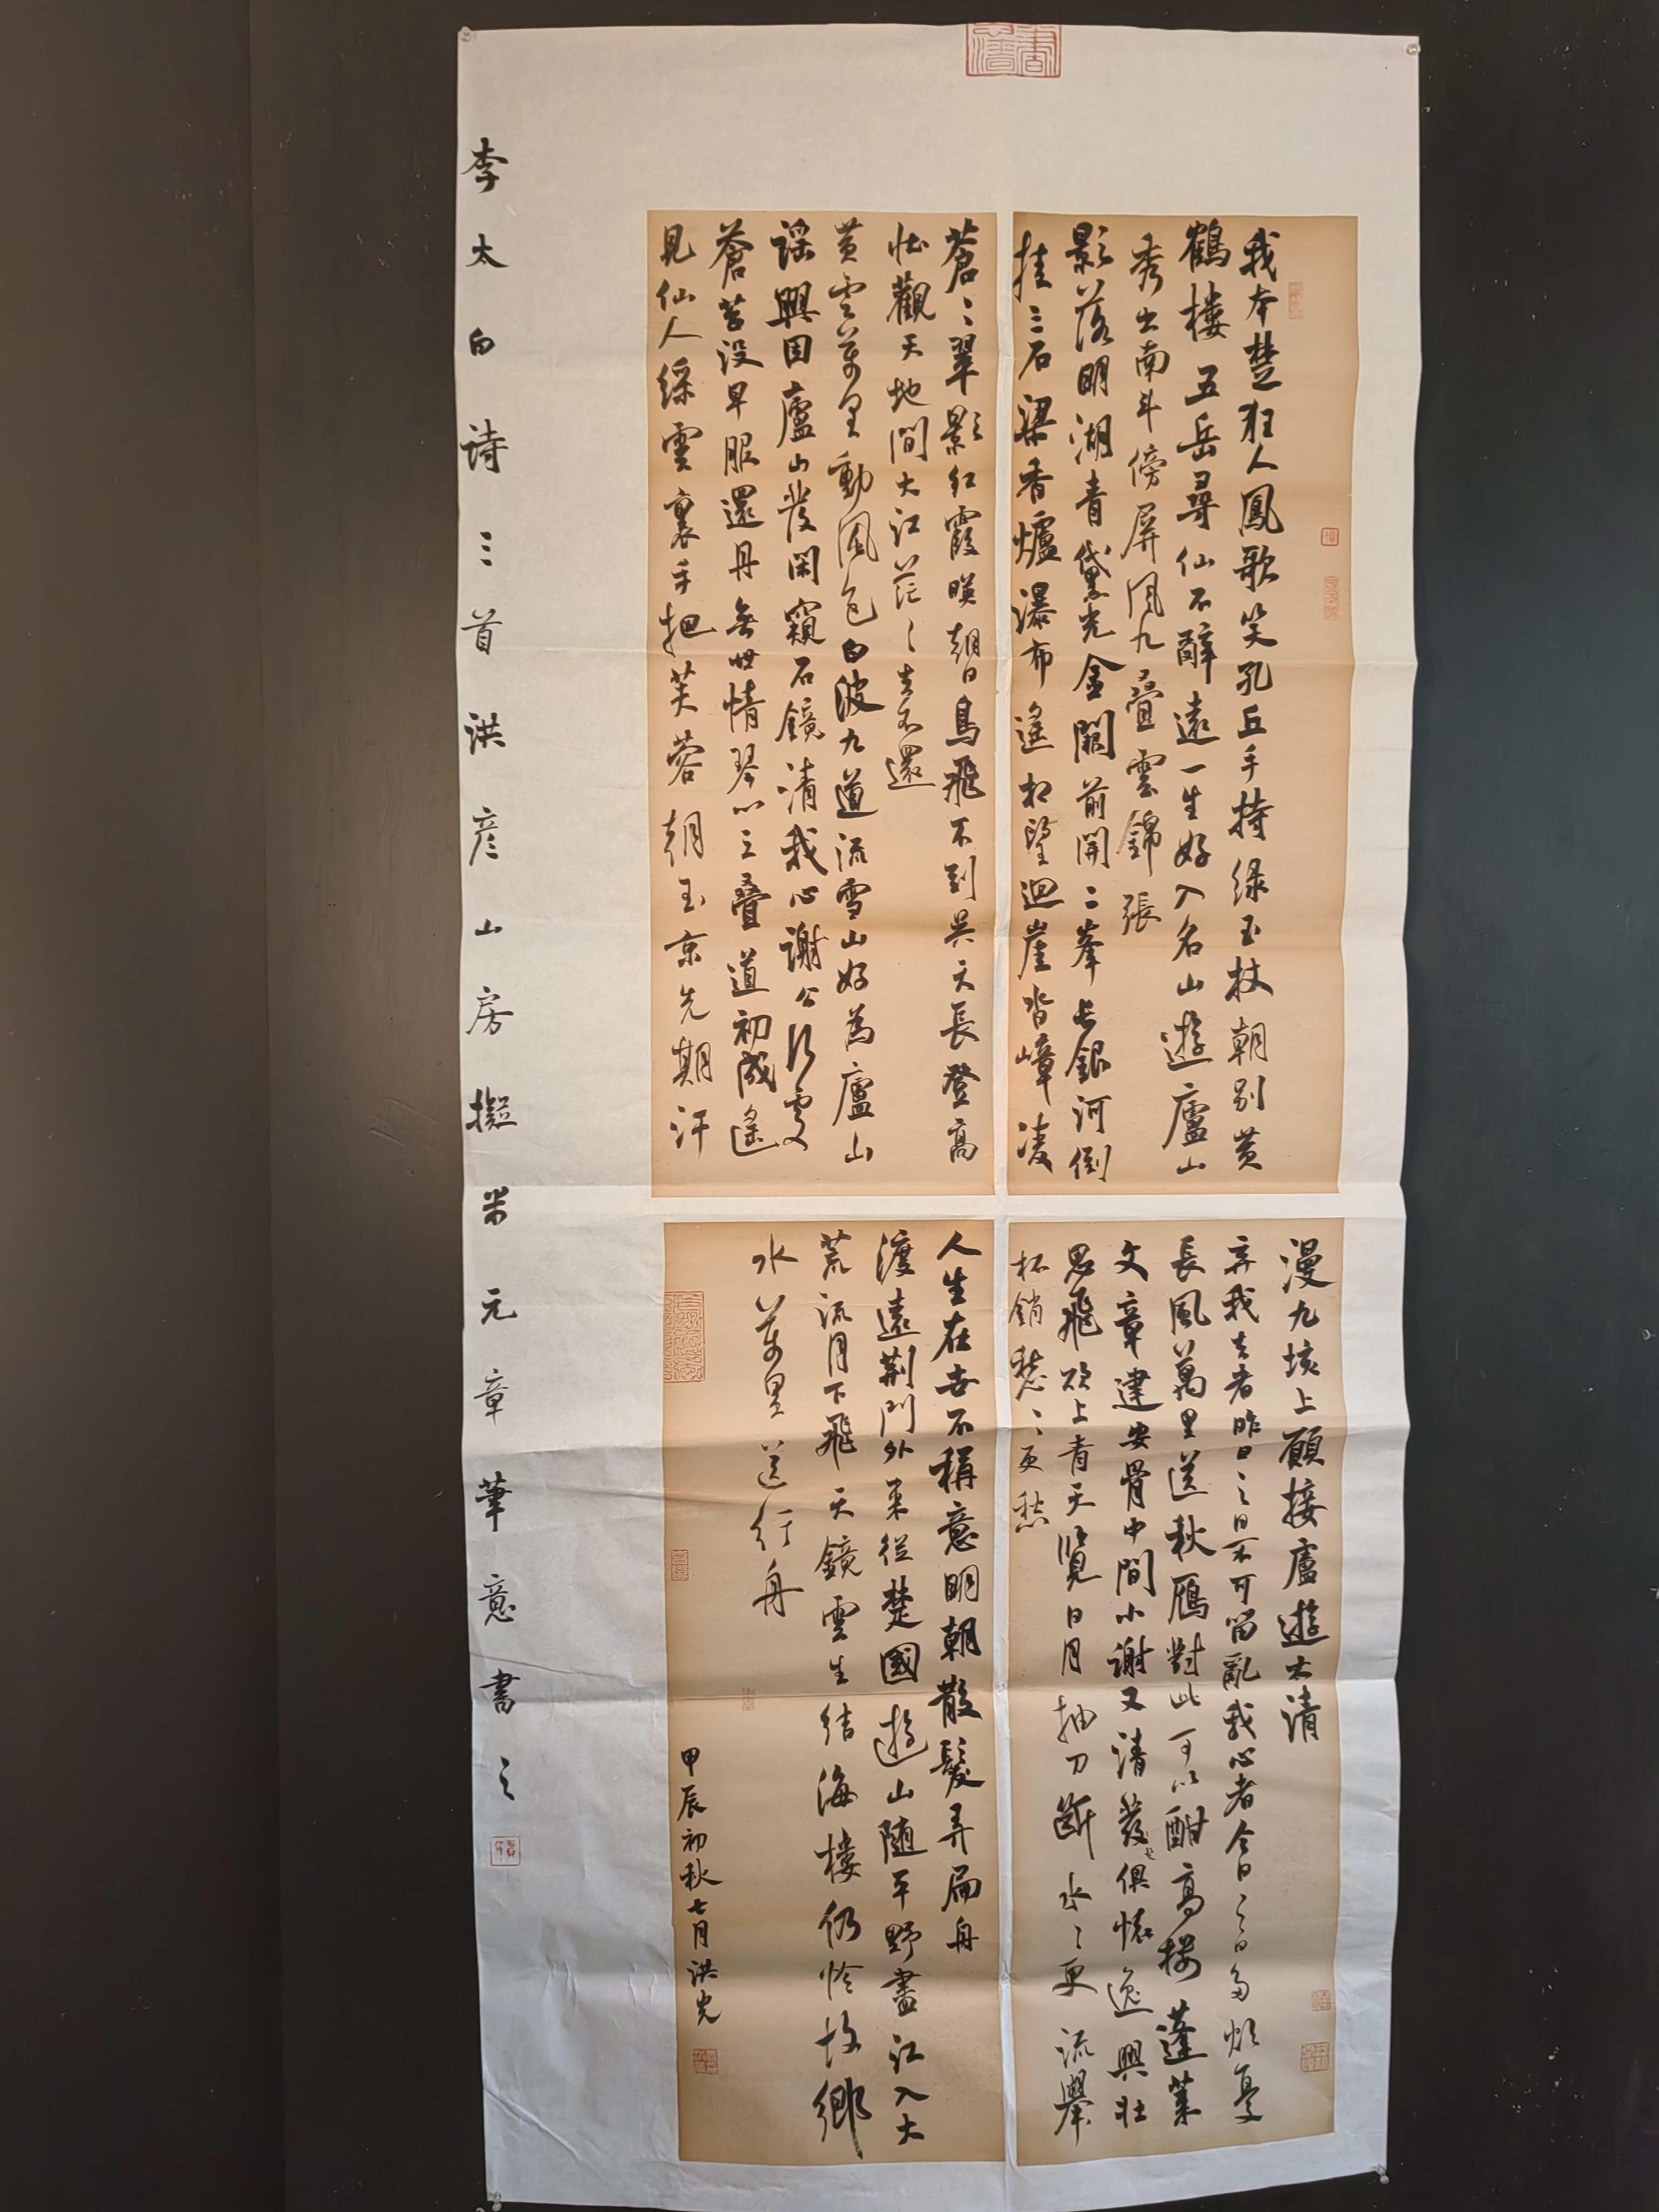 我本楚狂人鳳歌笑孔丘手持綠玉杖朝別黄
鶴樓五岳尋仙不辭遠一生好入名山遊廬山
秀出南斗傍屏風九疊雲錦張
影落明湖青黛光金闕前開二峯長銀河倒
挂三石梁香爐瀑布遙相望迴崖沓嶂凌
蒼〻翠影紅霞暎朝日鳥飛不到吴天長登高
壯觀天地間大江茫〻去不還
黄雲萬里動風色白波九道流雪山好為廬山
謠興因廬山發閑窺石鏡清我心謝公行處
蒼苔没早服還丹無世情琴心三疊道初成遙
見仙人綵雲裏手把芙蓉朝玉京先期汗
漫九垓上願接盧遨遊太清
弃我去者昨日之日不可留亂我心者今日之日多煩憂
長風萬里送秋鴈對此可以酣高樓蓬萊
文章建安骨中間小謝又清發俱懷逸興壯
思飛欲上青天覽日月抽刀斷水〻更流舉
杯銷愁〻更愁
人生在世不稱意明朝散髮弄扁舟
渡遠荆門外来從楚國遊山随平野盡江入大
荒流月下飛天鏡雲生结海樓仍怜故鄉
水萬里送行舟
甲辰初秋七月洪光
李太白詩三首洪彦山房擬米元章筆意書之